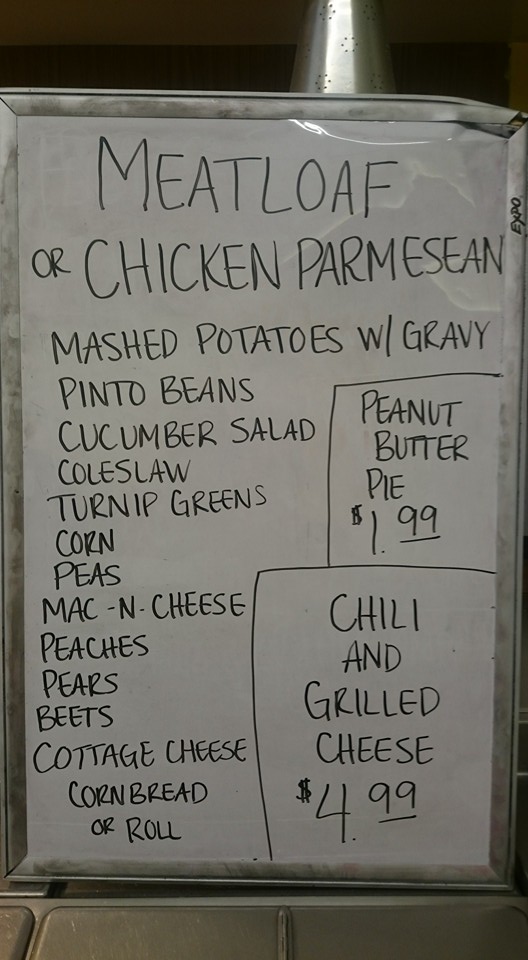 MEATLOAF
OR CHICKEN PARMESEAN
MASHED POTATOES W/ GRAVY
PINTO BEANS
CUCUMBER SALAD
COLESLAW
TURNIP GREENS
CORN
PEAS
MAC-N-CHEESE
PEACHES
PEARS
BEETS
COTTAGE CHEESE
CORNBREAD
OR ROLL
PEANUT
BUTTER
PIE
$1.99
CHILI
AND
GRILLED
CHEESE
$4.99
EXPO